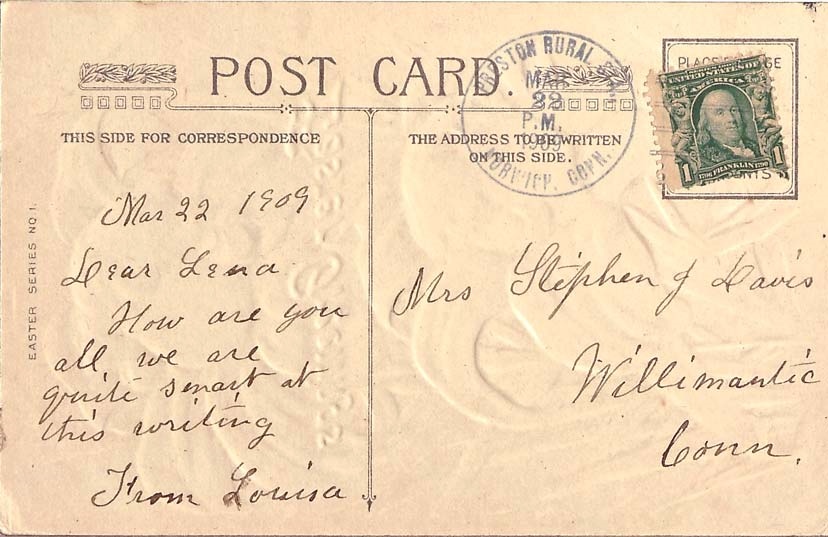 POST CARD.
THIS SIDE FOR CORRESPONDENCE
THE ADDRESS TO BE WRITTEN
ON THIS SIDE.
PRESTON RURAL
MAR
22
P.M.
1909
NORWICH, CONN.
UNITED STATES OF
AMERICA
1 FRANKLIN 1
EASTER SERIES NO 1.
Mar 22 1909
Dear Lena
How are you
all we are
quite smart at
this writing
From Louisa
Mrs Stephen J Davis
Willimantic
Conn.